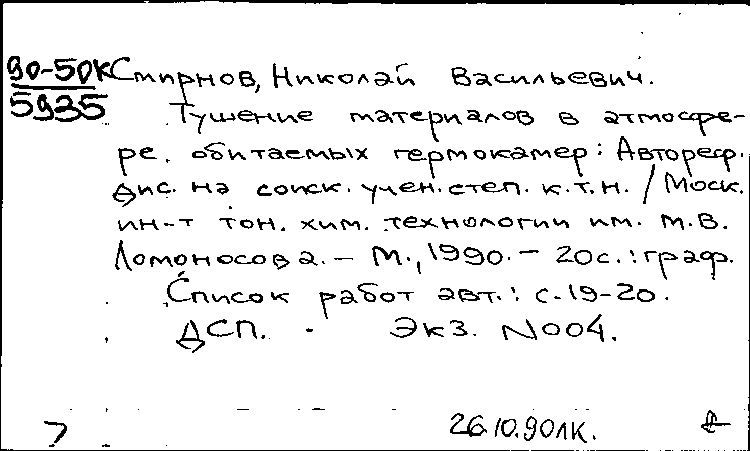 90-50К
5935
Смирнов, Николай Васильевич.
Тушение материалов в атмосфе-
ре обитаемых гермокамер: Автореф.
дис. на соиск. учен. степ. к.т.н. / Моск.
ин-т тон. хим. технологии им. М.В.
Ломоносова. – М., 1990. – 20с.: граф.
Список работ авт.: с.19-20.
ДСП. Экз. N004.
26.10.90ЛК.